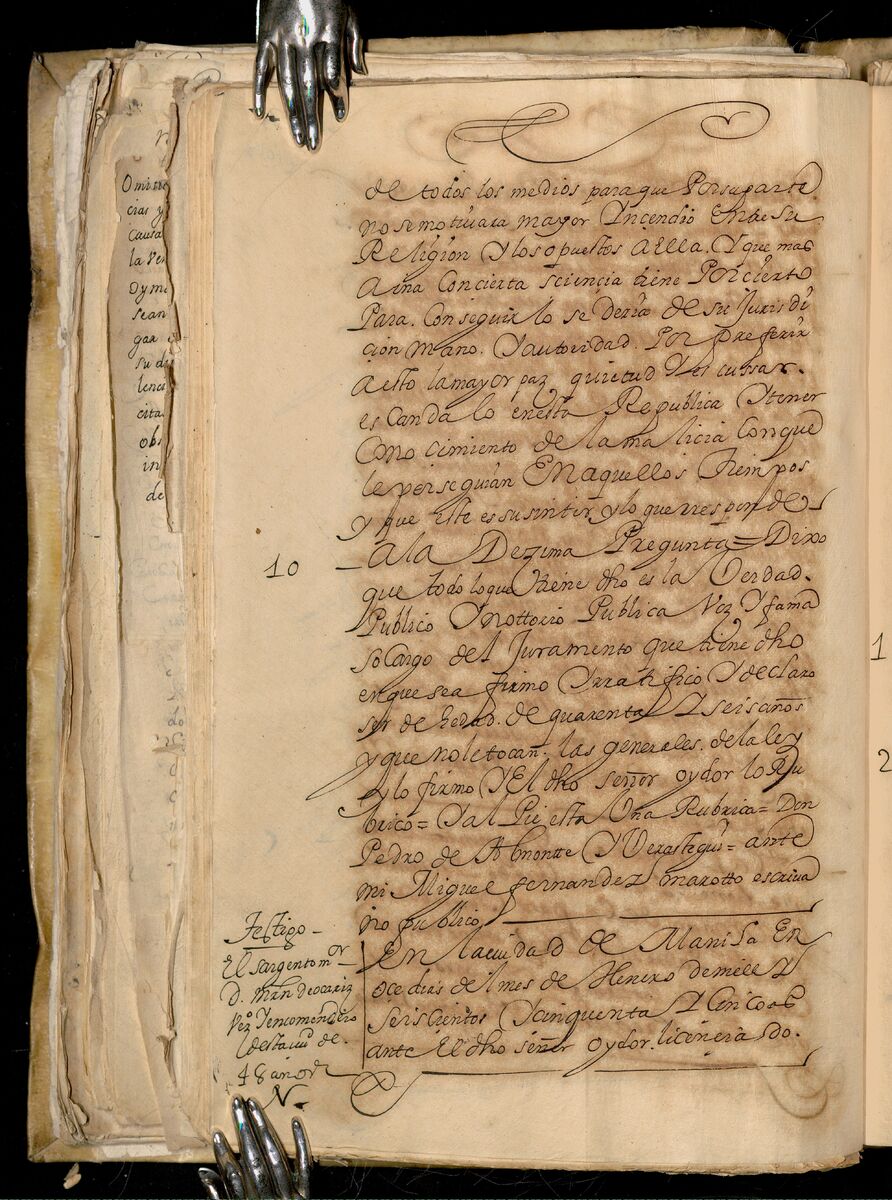 de todos los medios para que Por su parte
no se motiuara mayor Yncendio Entre su
Religion Y los opuestos a ella. Y que mas
ayna Con cierta sciencia tiene Por cierto
Para. Conseguirlo se deria de su Jurisdi
cion Mano. Y autoridad. Por preferir
a esto la mayor paz quietud Y es cussar.
es Candalo en esta Republica Y tener
Cono cimiento de la malicia Con que
le perseguian En aquellos tiempos
y que Este es su sintir y lo que rresponde
10
A la Dezima Pregunta = Dixo
que todo lo que tiene dho es la Verdad.
Publico Y nottorio Publica Voz Y fama
so Cargo del Juramento que tiene dho
en que se a firmo Y rratifico Y declaro
ser de hedad. de quarenta Y seis años
y que no le tocan. las generales. de la ley
y lo firmo Y El dho señor oydor lo Ru
brico = Y al Pie esta Una Rubrica = Don
Pedro de Almontte Y Verastegui = ante
mi Miguel fernandez marotto escriva
no publico
Testigo
El sargento mor
D. Mrn de ocariz
Vezo Y encomendero
desta ciud de.
48 años
N.
En la ciudad de Manila En
oce dias del mes de Henero de mill Y
seiscientos Y cinquenta Y Cinco as
ante El dho señor oydor. licencia do.
Omi
cias y
Causa
la Ve
Oy me
sean
gar
su di
lenc
cita
obs
in
de
1
2